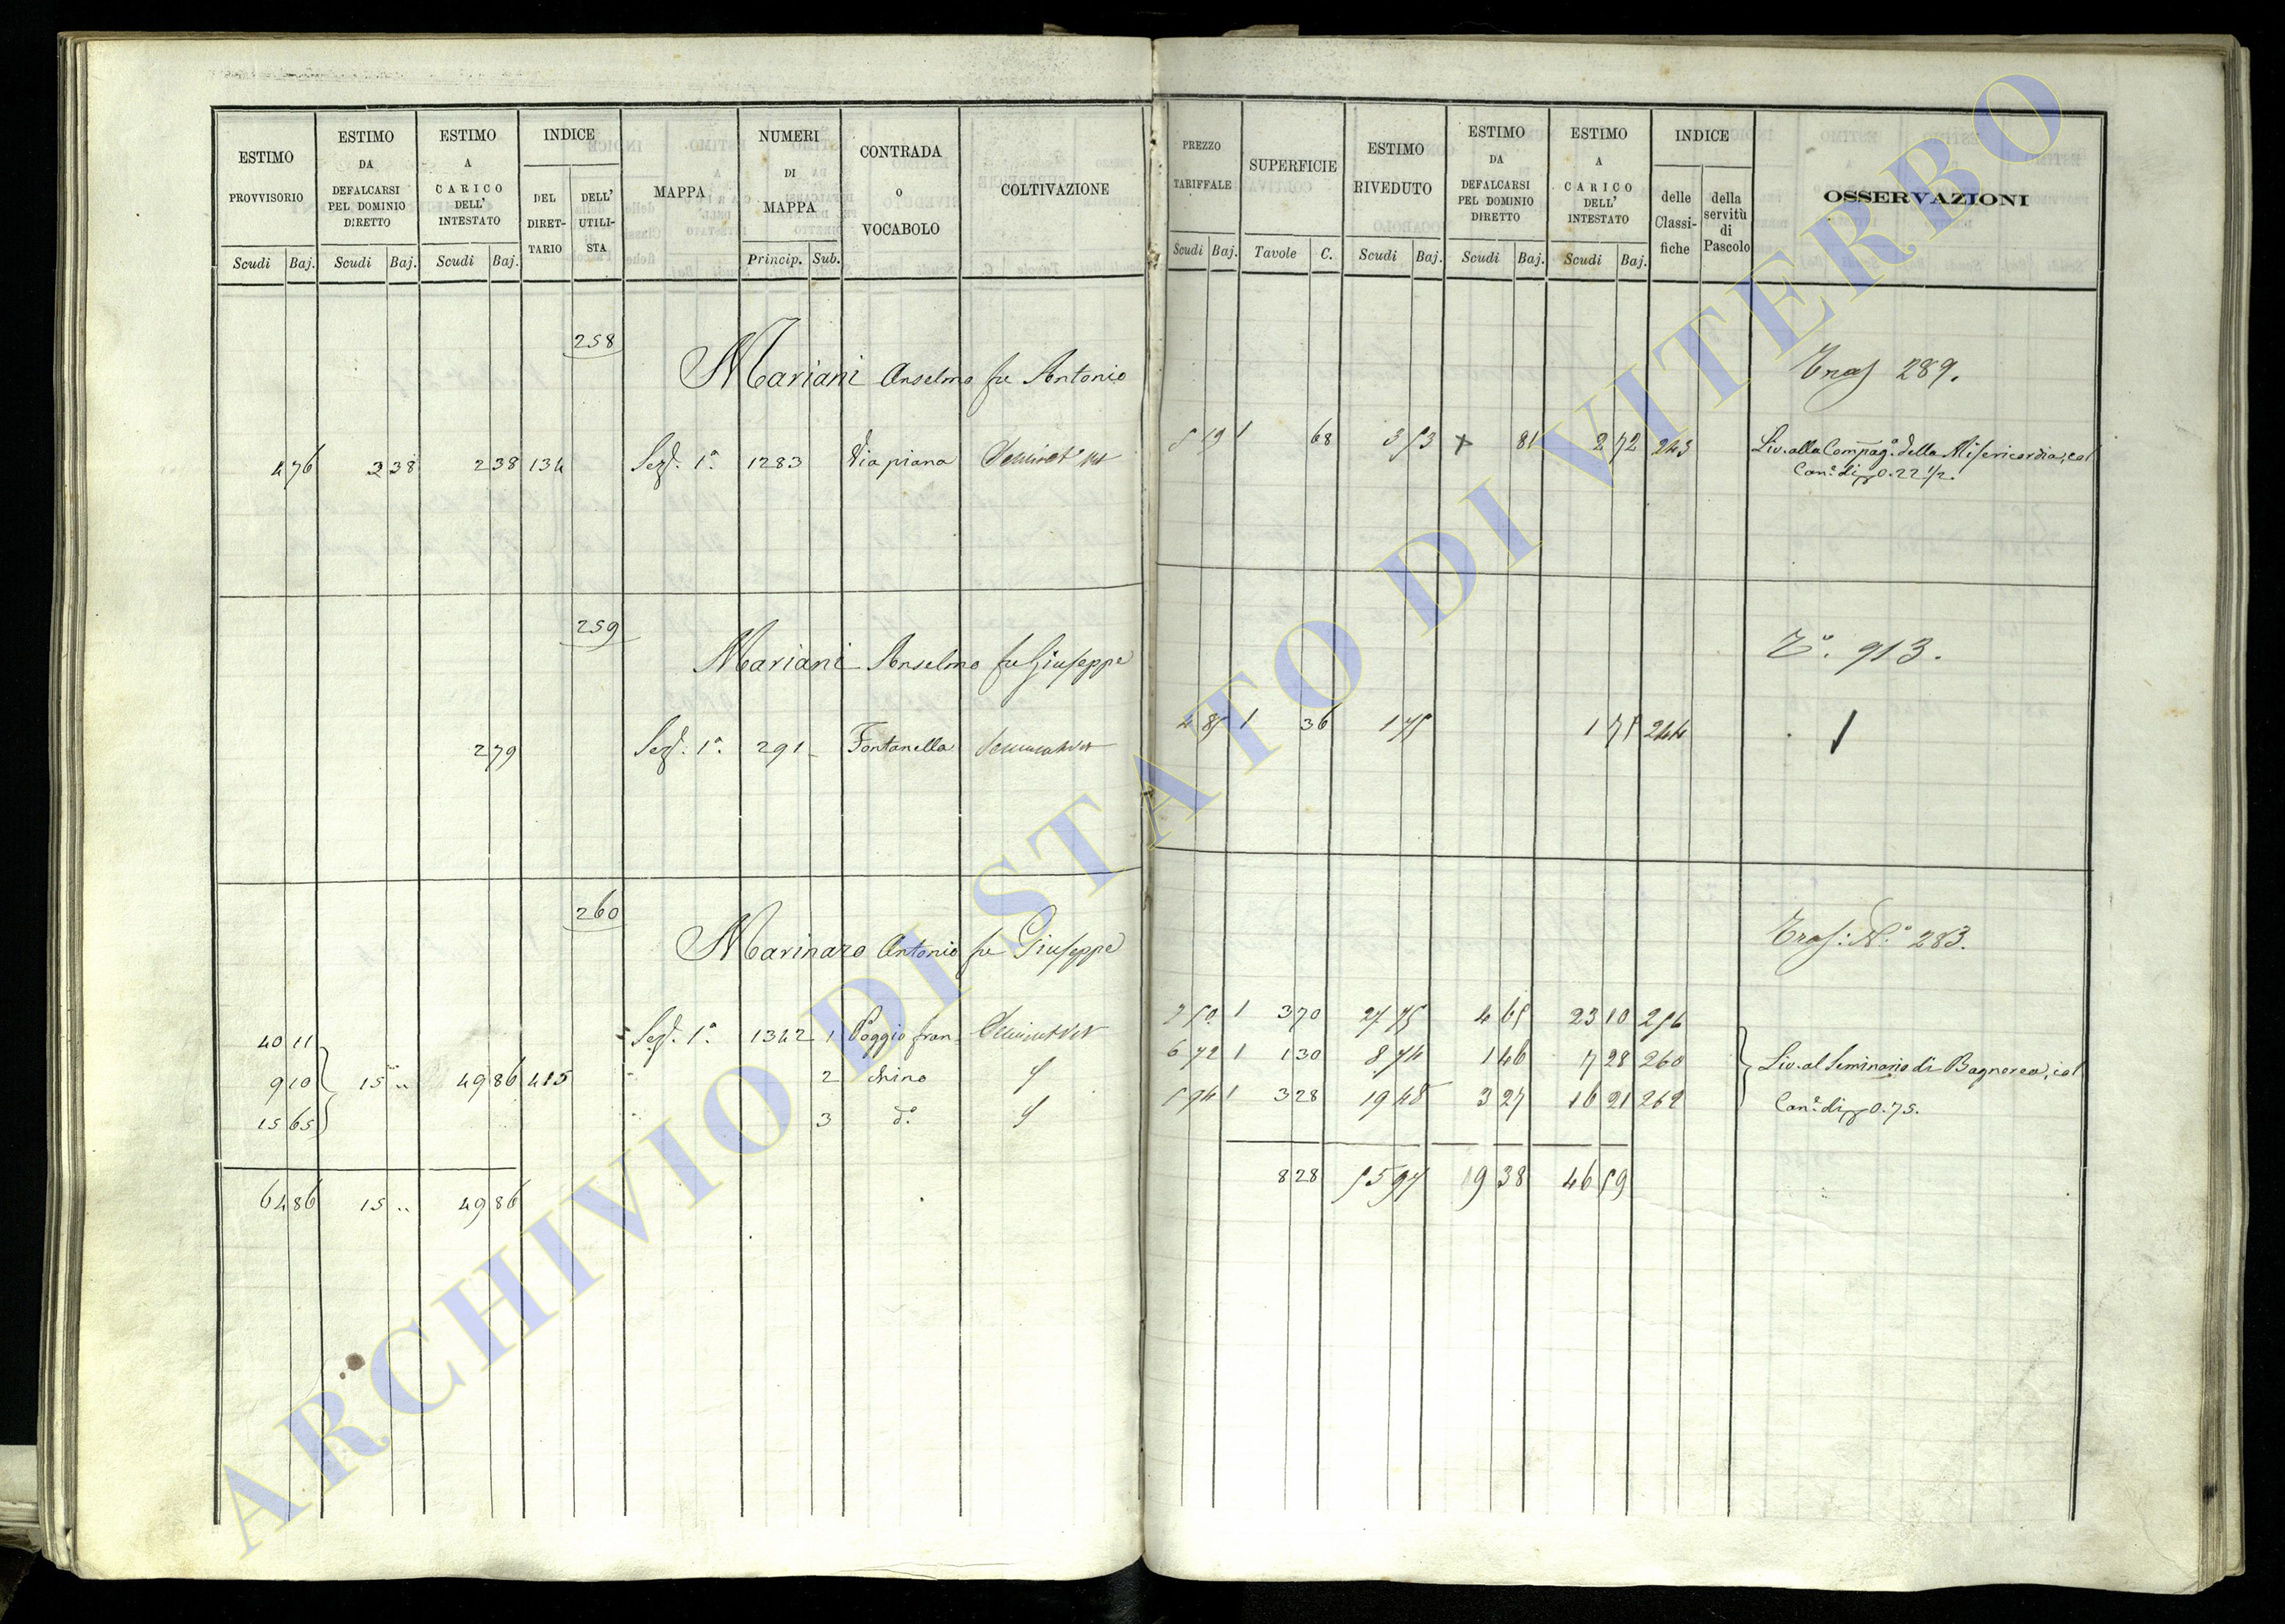 ESTIMO PROVVISORIO Scudi Baj.
ESTIMO DA DEFALCARSI PEL DOMINIO DIRETTO Scudi Baj.
ESTIMO A CARICO DELL' INTESTATO Scudi Baj.
INDICE DEL DIRET-TARIO DELL' UTILI-STA
MAPPA
NUMERI DI MAPPA Princip. Sub.
CONTRADA o VOCABOLO
COLTIVAZIONE
PREZZO TARIFFALE Scudi Baj.
SUPERFICIE Tavole C.
ESTIMO RIVEDUTO Scudi Baj.
ESTIMO DA DEFALCARSI PEL DOMINIO DIRETTO Scudi Baj.
ESTIMO A CARICO DELL' INTESTATO Scudi Baj.
INDICE delle Classi-fiche della servitù di Pascolo
OSSERVAZIONI
258
Mariani Anselmo fu Antonio
Tras 289.
4 76 2 38 2 38 134 Sez. 1ª 1283 Via piana 5 19 1 68 3 53 81 2 72 243 Liv. alla Compag.ª della Misericordia, col
Can.e di 0.22 1/2.
259
Mariani Anselmo fu Giuseppe
T.º 913.
2 79 Sez. 1ª 291 Fontanella Seminat Vit 4 85 1 36 1 75 1 75 244
260
Marinaro Antonio fu Giuseppe
Tras: N.º 283.
40 11 Sez. 1ª 1342 1 Poggio fran- Seminat Vit 7 50 1 3 70 27 75 4 65 23 10 256
9 10 15 .. 49 86 415 2 chino 6 72 1 1 30 8 74 1 46 7 28 260 Liv. al Seminario di Bagnorea, col
15 65 3 d.º 5 94 1 3 28 19 48 3 27 16 21 262 Can.e di 0.75.
64 86 15 .. 49 86 8 28 55 97 9 38 46 59
ARCHIVIO DI STATO DI VITERBO